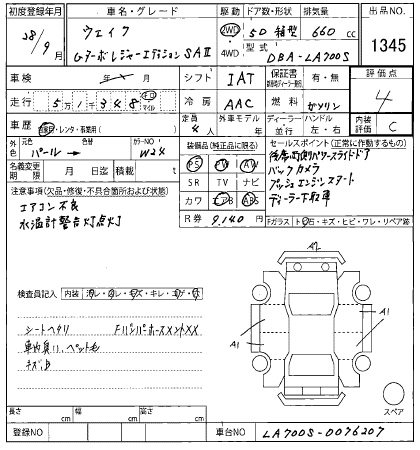 初度登録年月 車名・グレード 駆動 ドア数・形状 排気量 出品NO.
28/9月 ウェイク 2WD 5D 箱型 660cc 1345
Gターボレジャーエディション SAⅡ 4WD 型式 DBA-LA700S
車検 年 月 シフト IAT 保証書 有・無 評価点
走行 5万1千348 キロ マイル 冷房 AAC 燃料 ガソリン 4
車歴 自家用・レンタ・事業用( ) 定員 4人 外車モデル 年 ディーラー 並行 ハンドル 左・右 内装評価 C
外色 元色 パール → 色替 カラーNO W24 装備品(純正品に限る) セールスポイント(正常に作動するもの)
PS PW AW
名義変更期限 月 日迄 積載 t SR TV ナビ バックカメラ
プッシュエンジンスタート
注意事項(欠品・修復・不具合箇所および状態) カワ エアB ABS ディーラー下取車
エアコン不良 R券 9,140円 Fガラス ト石・キズ・ヒビ・ワレ・リペア跡
水温計警告灯点灯
A2
検査員記入 内装 ・キレ・
シートヘタリ FバンパーホースメントXX
車内臭い、ペット毛 A1 A1
キズ、
スペア
長さ cm 幅 cm 高さ cm
登録NO 車台NO LA700S-0076207